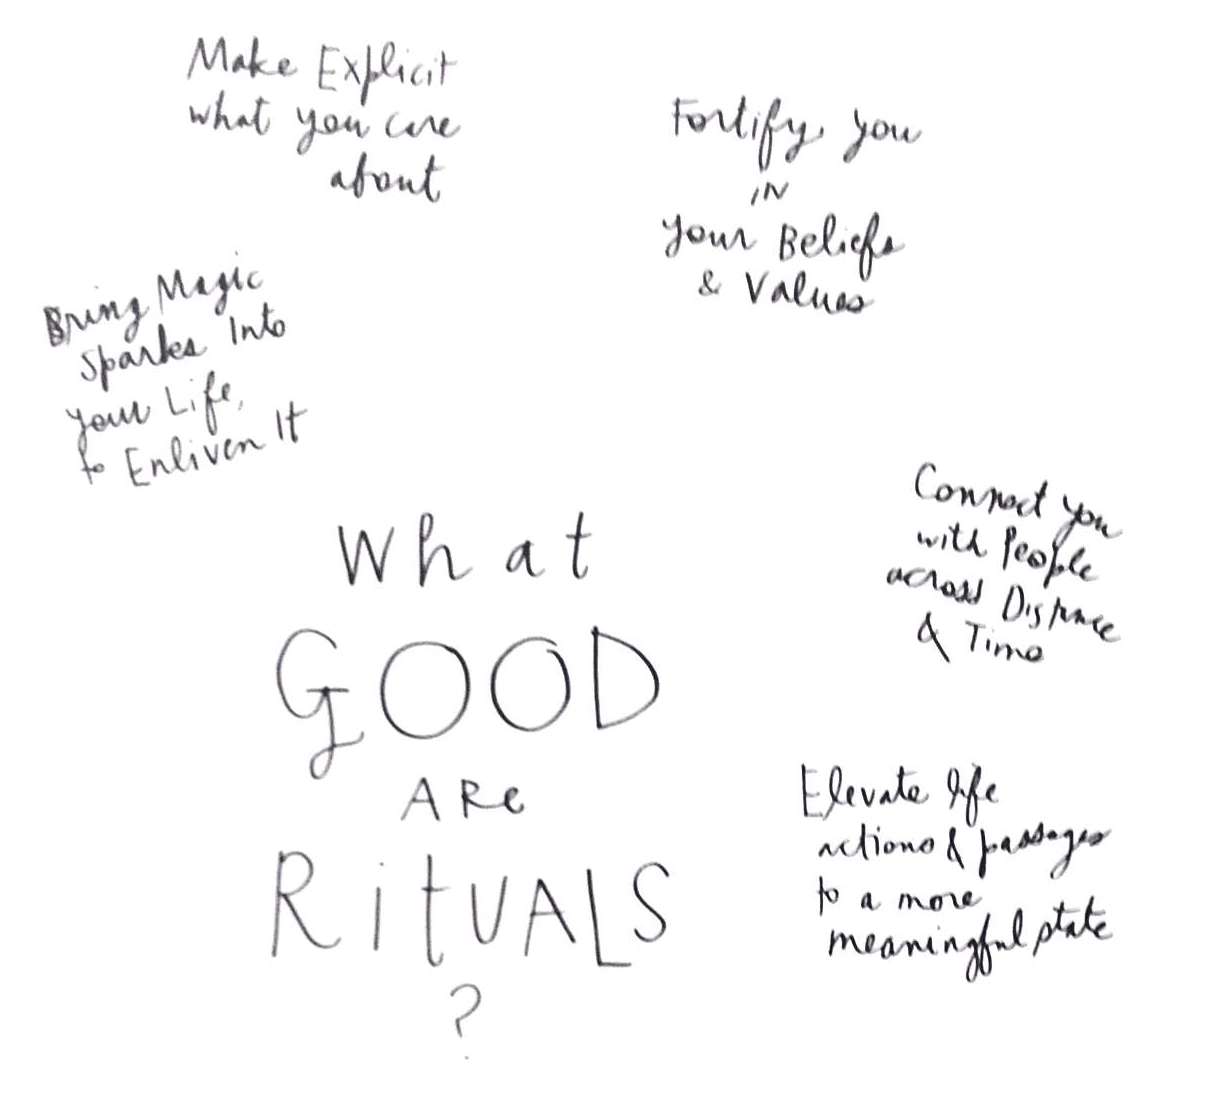 Make Explicit
what you care
about
Fortify you
IN
your Beliefs
& Values
Bring Magic
Sparks Into
your Life,
to Enliven It
Connect you
with People
across Distance
& Time
What
GOOD
ARe
RitUALS
?
Elevate life
actions & passages
to a more
meaningful state